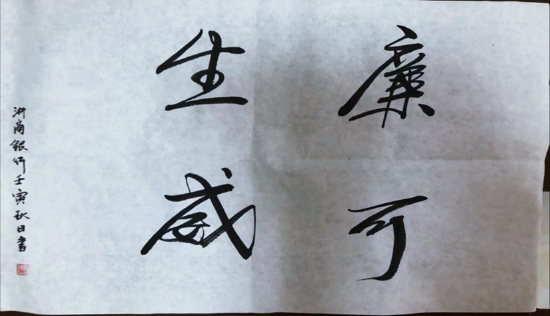 廉可
生威
浙商银行壬寅秋日书